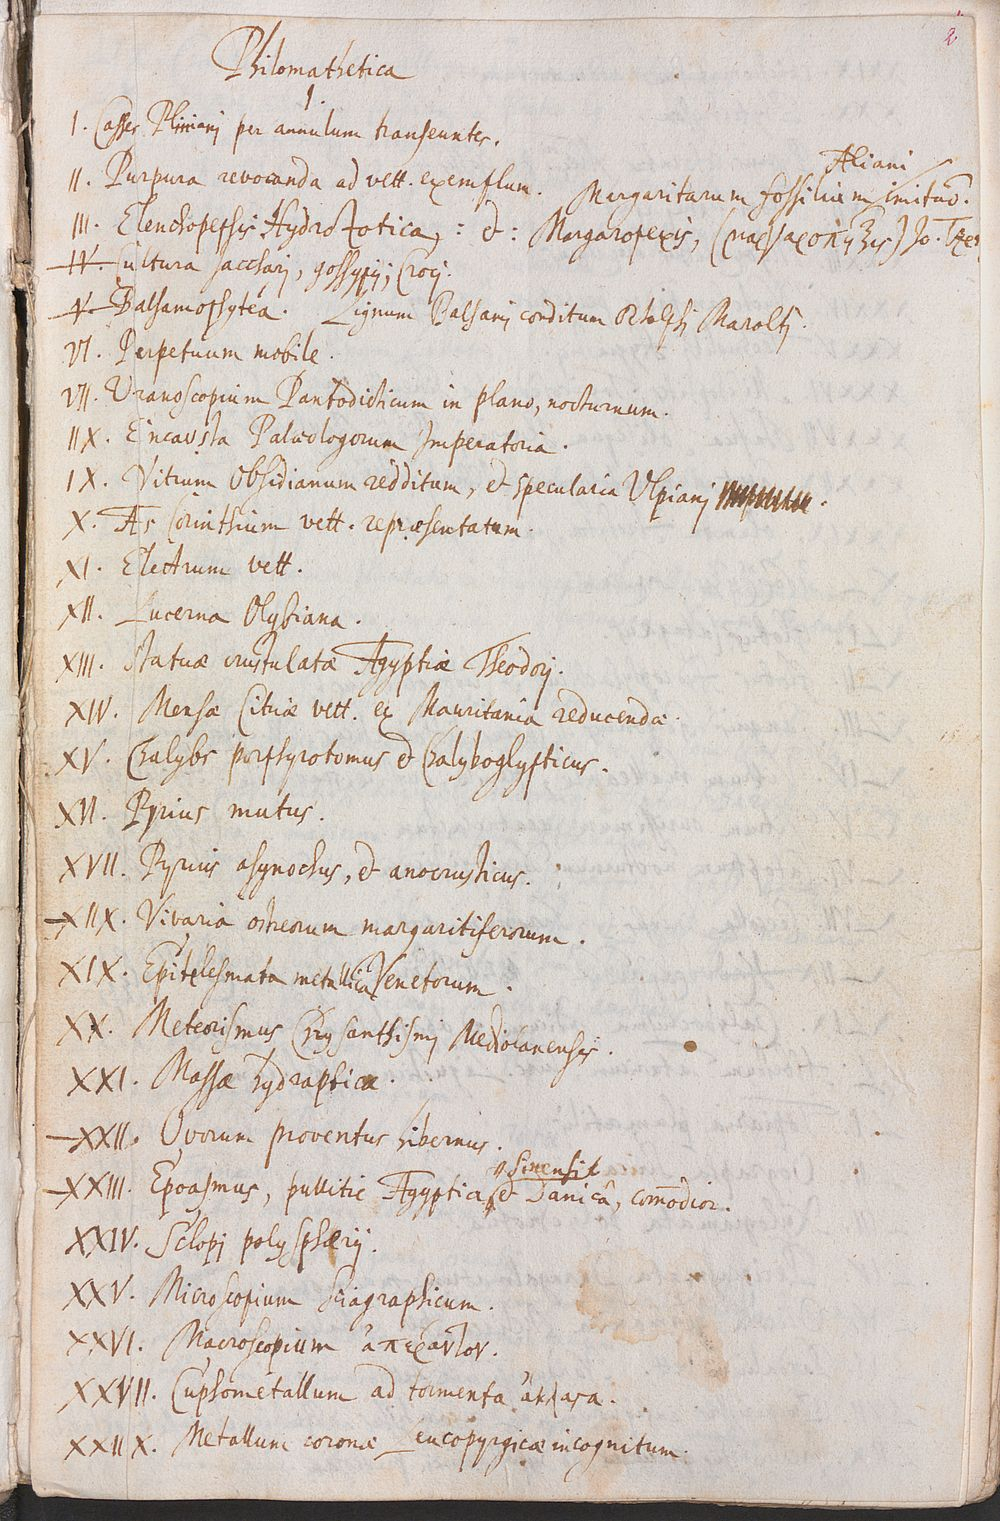 2
Philomathetica
1.
I. Casses Pliniani per annulum transeuntes.
II. Purpura revocanda ad vett. exemplum. Margaritarum fossilium imitatio.
Æliani
III. Hydro &: Margaropexis, Jo.
IV. Cultura sacchari, gossypij, Croci.
V. Balsamophytéa. Lignum Balsami conditum
VI. Perpetuum mobile.
VII. Uranoscopium Pantodicticum in plano, nocturnum.
IIX. Encausta Palæologorum Imperatoria.
IX. Vitrum Obsidianum redditum, & specularia Ulpiani
X. Æs Corinthium vett. repræsentatum.
XI. Electrum vett.
XII. Lucerna Olybiana.
XIII. Statuæ crustulatæ Ægyptiæ Theodorj.
XIV. Mensæ Citriæ vett. ex Mauritania reducendæ.
XV. Chalybs porphyrotomus & Chalyboglypticus.
XVI. Pyrius mutus.
XVII. Pyrius & anocrusticus.
XIIX. Vivaria ostreorum margaritiferorum.
XIX. Epitelesmata metallica Venetorum.
XX. Meteorismus Chrysanthismj Mediolanensis.
XXI. Massæ hydrapticæ.
XXII. Ovorum proventus hibernus.
Sinensi
XXIII. Epoasmus, pullitie Ægyptia, & Danicâ, comodior.
XXIV. Sclopj polysphærij.
XXV. Microscopium sciagraphicum.
XXVI. Macroscopium ἀπέραντον.
XXVII. Cuphometallum ad tormenta
XXIIX. Metallum coronæ Leucopyrgicæ incognitum.